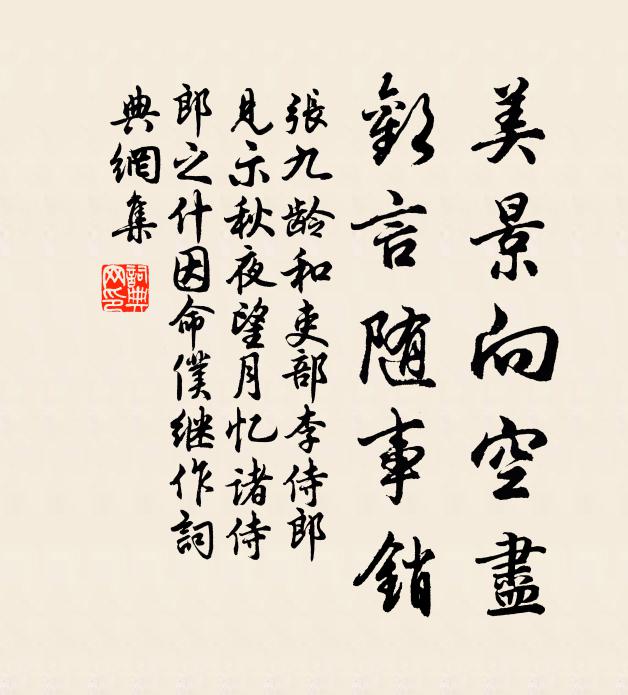 美景向空盡
歡言随事銷
張九龄和吏部李侍郎
見示秋夜望月忆诸侍
郎之什因命僕继作詞
典網集
詞典
网印